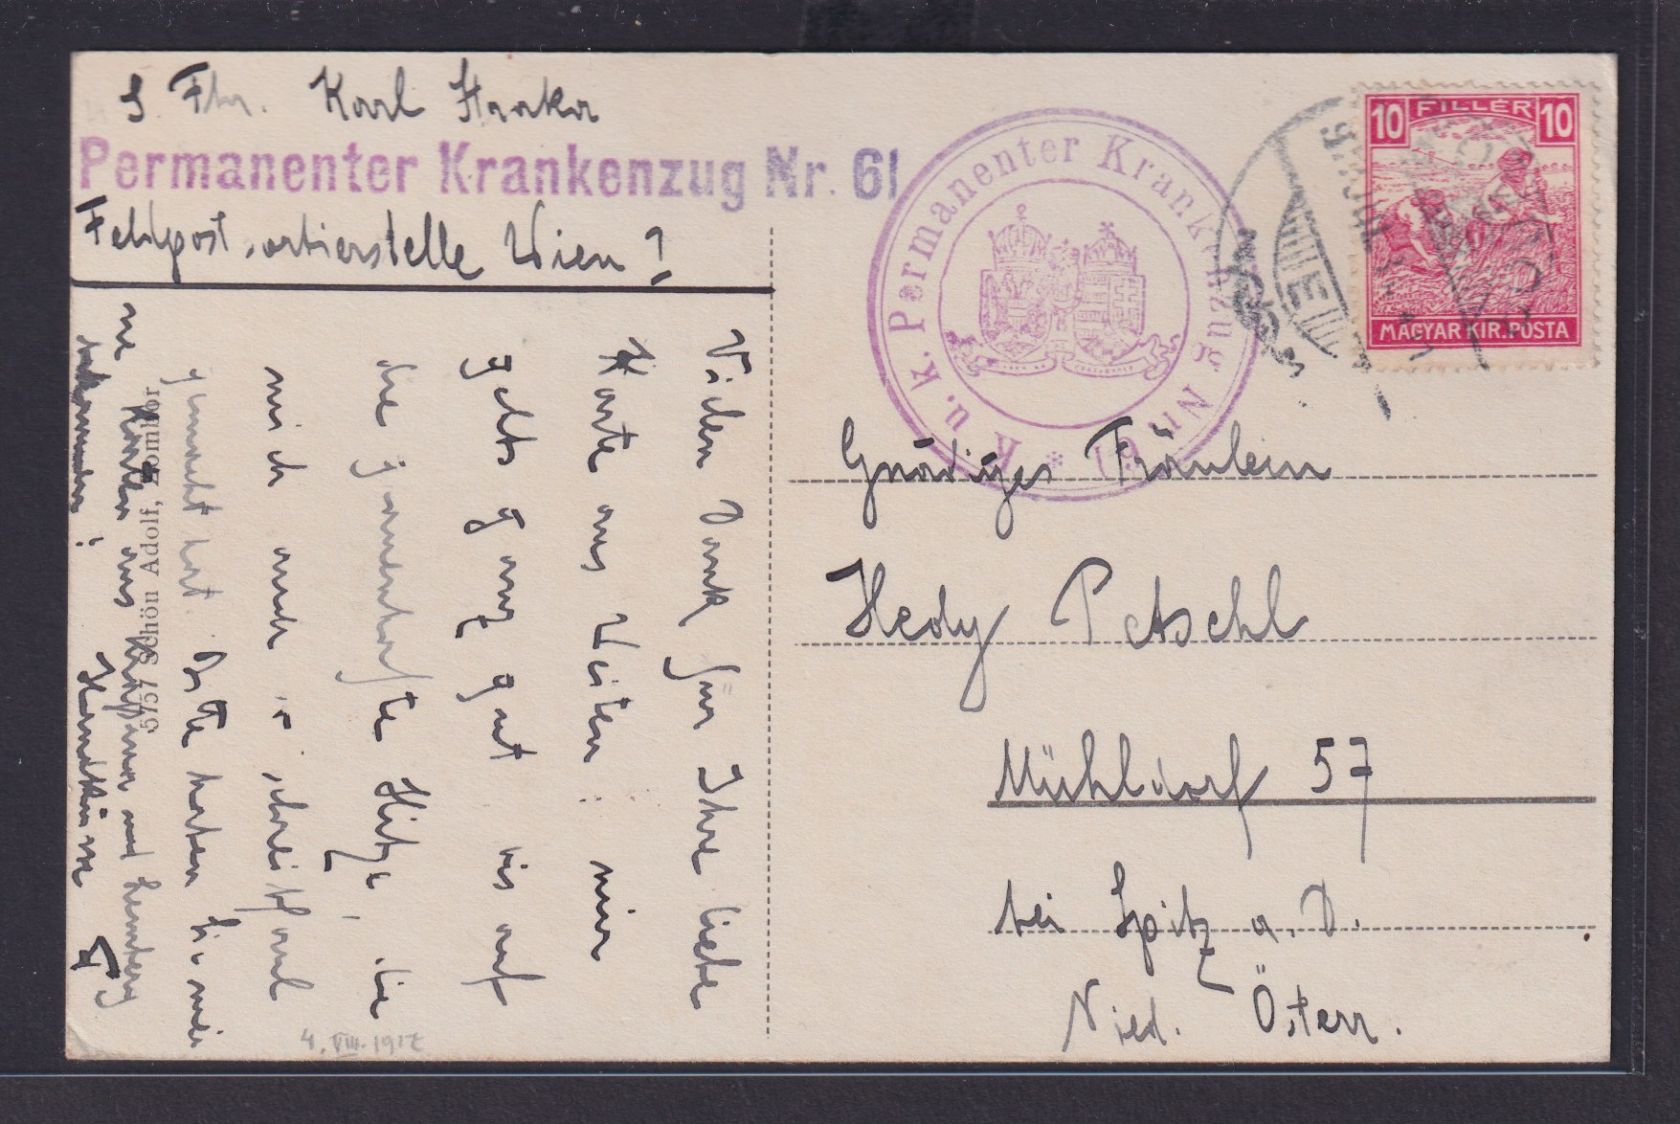 S. Fhr. Karl Starka
Permanenter Krankenzug Nr. 61
Feldpostsortierstelle Wien!
K. u. k. Permanenter Krankenzug Nr. 61 *
10 FILLÉR 10
MAGYAR KIR. POSTA
Vielen Dank für Ihre liebe
Karte aus Weiten. mir
gehts ganz gut bis auf
die Hitze, die
mich auch so
gemacht hat. Bitte
Karten aus und Lemberg
bekommen? Handküsse
5757 Schön Adolf, Zombor
4. VIII. 1917
Gnädiges Fräulein
Hedy Petschl
Mühldorf 57
bei Spitz a. D.
Nied. Österr.